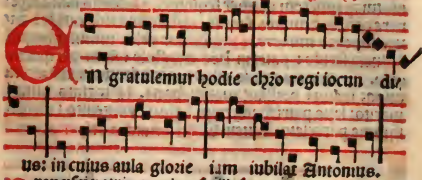 En gratulemur hodie chro regi iocun die
us: in cuius aula glorie iam iubilat Antonius.